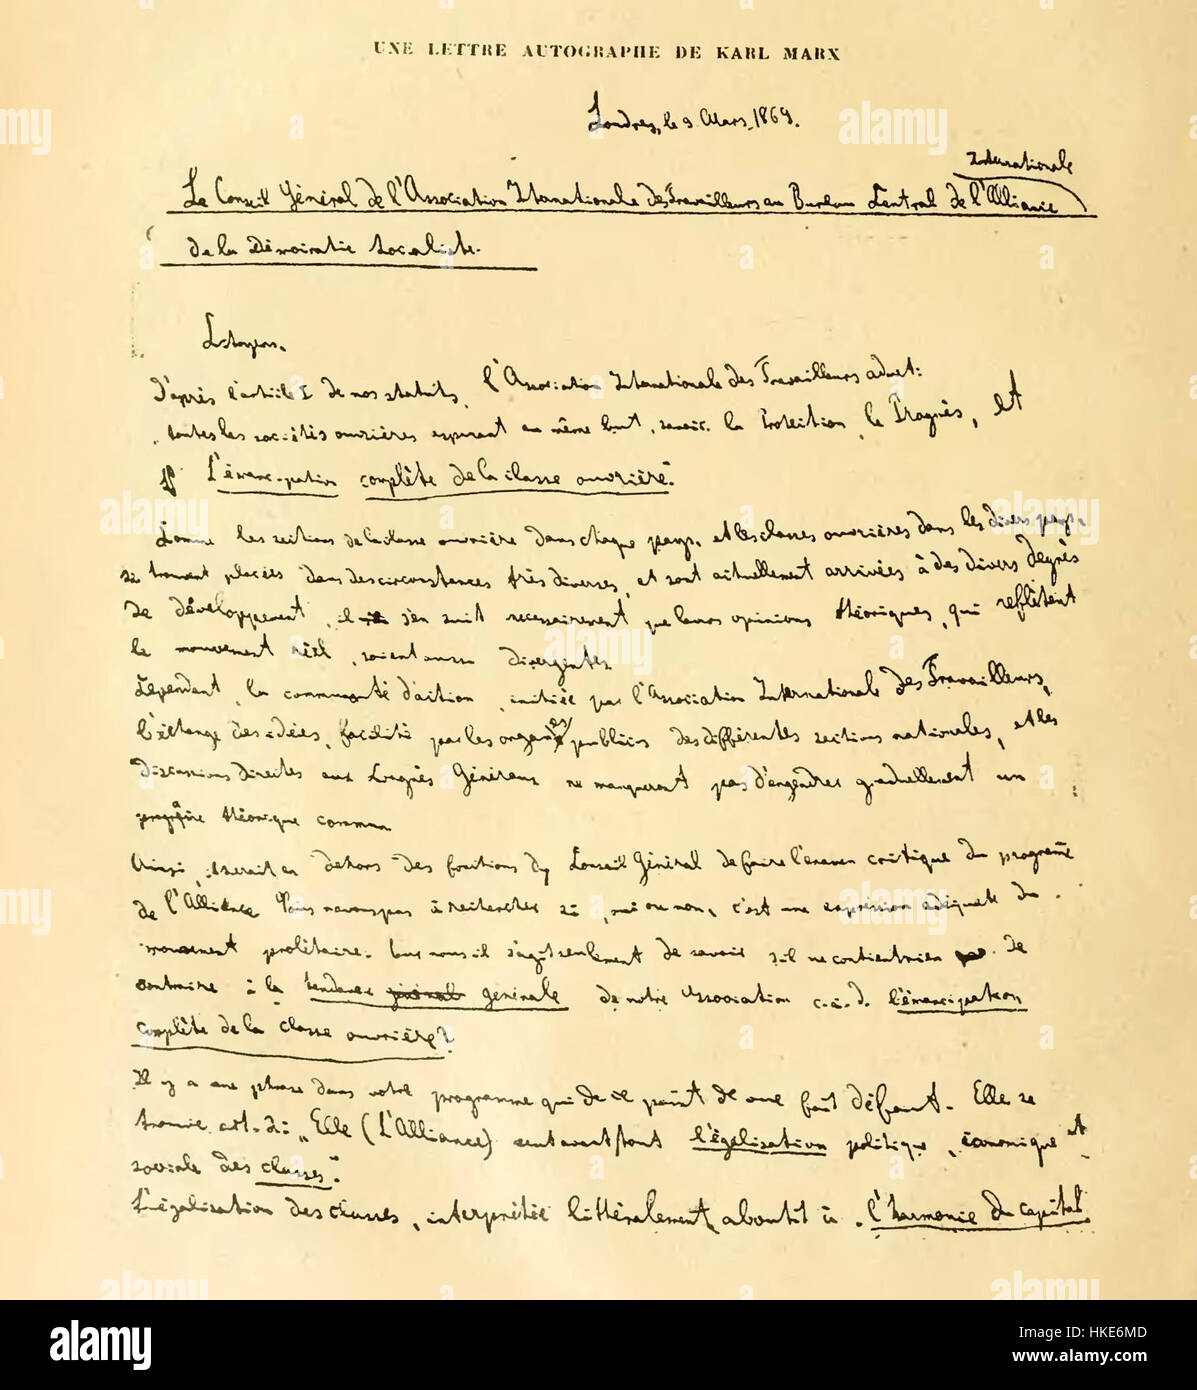 UNE LETTRE AUTOGRAPHE DE KARL MARX
Londres, le 9 Mars, 1869.
Internationale
Le Conseil Général de l'Association Internationale des Travailleurs au Bureau Central de l'Alliance
de la Démocratie Socialiste.
Citoyens,
D'après l'article I de nos statuts, l'Association Internationale des Travailleurs admet:
"toutes les sociétés ouvrières aspirant au même but, savoir: la Protection, le Progrès, et
l'émancipation complète de la classe ouvrière."
Comme les sections de la classe ouvrière dans chaque pays, et les classes ouvrières dans les divers pays,
se trouvent placées dans des circonstances très diverses, et sont actuellement arrivées à des divers degrés
de développement, il s'en suit nécessairement que leurs opinions théoriques, qui reflètent
le mouvement réel, soient aussi divergentes.
Cependant, la communauté d'action, initiée par l'Association Internationale des Travailleurs,
l'échange des idées, facilité par les organes publics des différentes sections nationales, et les
discussions directes aux Congrès Généraux ne manqueront pas d'engendrer graduellement un
programme théorique commun
Ainsi, il serait en dehors des fonctions du Conseil Général de faire l'examen critique du programme
de l'Alliance. Nous n'avons pas à rechercher si, oui ou non, c'est une expression adéquate du
mouvement prolétaire. Pour nous il s'agit seulement de savoir s'il ne contient rien de
contraire à la tendance générale de notre Association c.à.d. l'émancipation
complète de la classe ouvrière?
Il y a une phrase dans votre programme qui de ce point de vue fait défaut. Elle se
trouve art. 2: "Elle (L'Alliance) veut avant tout l'égalisation politique, économique et
sociale des classes."
L'égalisation des classes, interprétée littéralement, aboutit à l'harmonie du capital
alamy
Image ID: HKE6MD
www.alamy.com